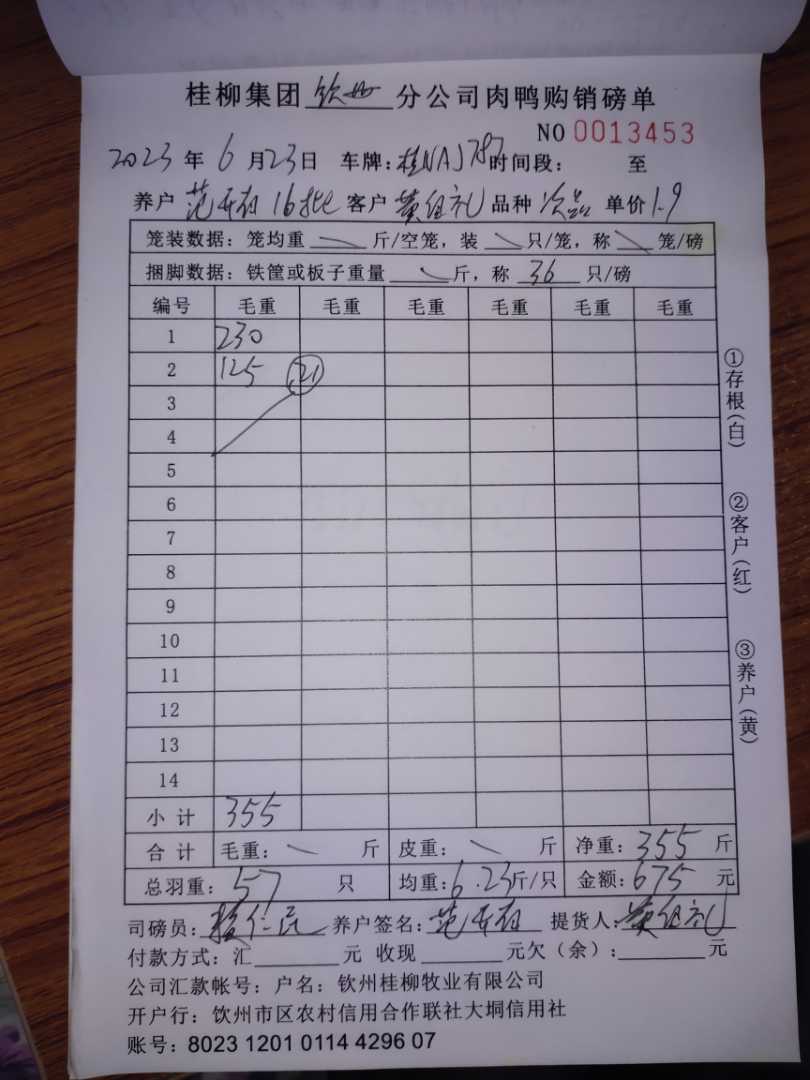 桂柳集团 钦州 分公司肉鸭购销磅单
NO 0013453
2023 年 6 月 23 日 车牌：桂NAJ787 时间段： 至
养户 范 16批 客户 黄组礼 品种 次品 单价 1.9
笼装数据：笼均重 \ 斤/空笼，装 \ 只/笼，称 \ 笼/磅
捆脚数据：铁筐或板子重量 \ 斤，称 36 只/磅
编号 毛重 毛重 毛重 毛重 毛重 毛重
1 230
2 125 21
3
4
5
6
7
8
9
10
11
12
13
14
小 计 355
合 计 毛重： \ 斤 皮重： \ 斤 净重：355 斤
总羽重：57 只 均重：6.23 斤/只 金额：675 元
司磅员： 养户签名：范 提货人：黄组礼
付款方式：汇 元 收现 元欠（余）： 元
公司汇款帐号：户名：钦州桂柳牧业有限公司
开户行：钦州市区农村信用合作联社大垌信用社
账号：8023 1201 0114 4296 07
①存根（白）
②客户（红）
③养户（黄）